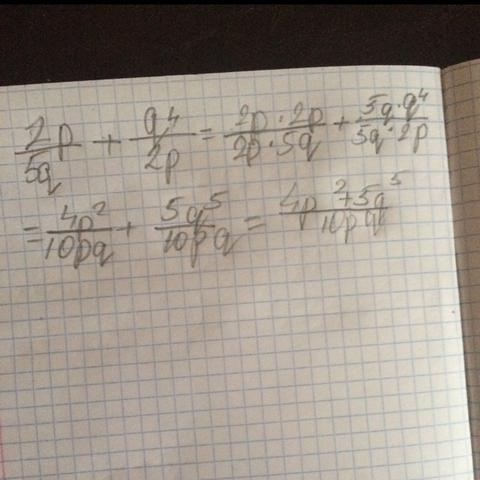 2p/5q + q⁴/2p = 2p·2p/2p·5q + 5q·q⁴/5q·2p
= 4p²/10pq + 5q⁵/10pq = 4p²+5q⁵/10pq